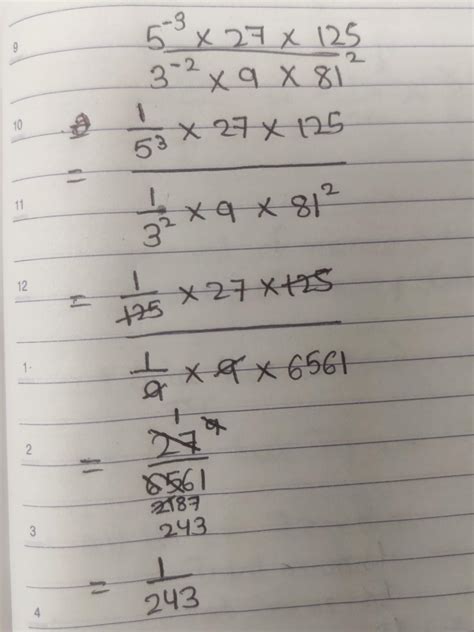 9
5⁻³ × 27 × 125
3⁻² × 9 × 81²
10
= 1/5³ × 27 × 125
11
1/3² × 9 × 81²
12
= 1/125 × 27 × 125
1
1/9 × 9 × 6561
1
2
= 27 9
6561
2187
3
243
= 1/243
4